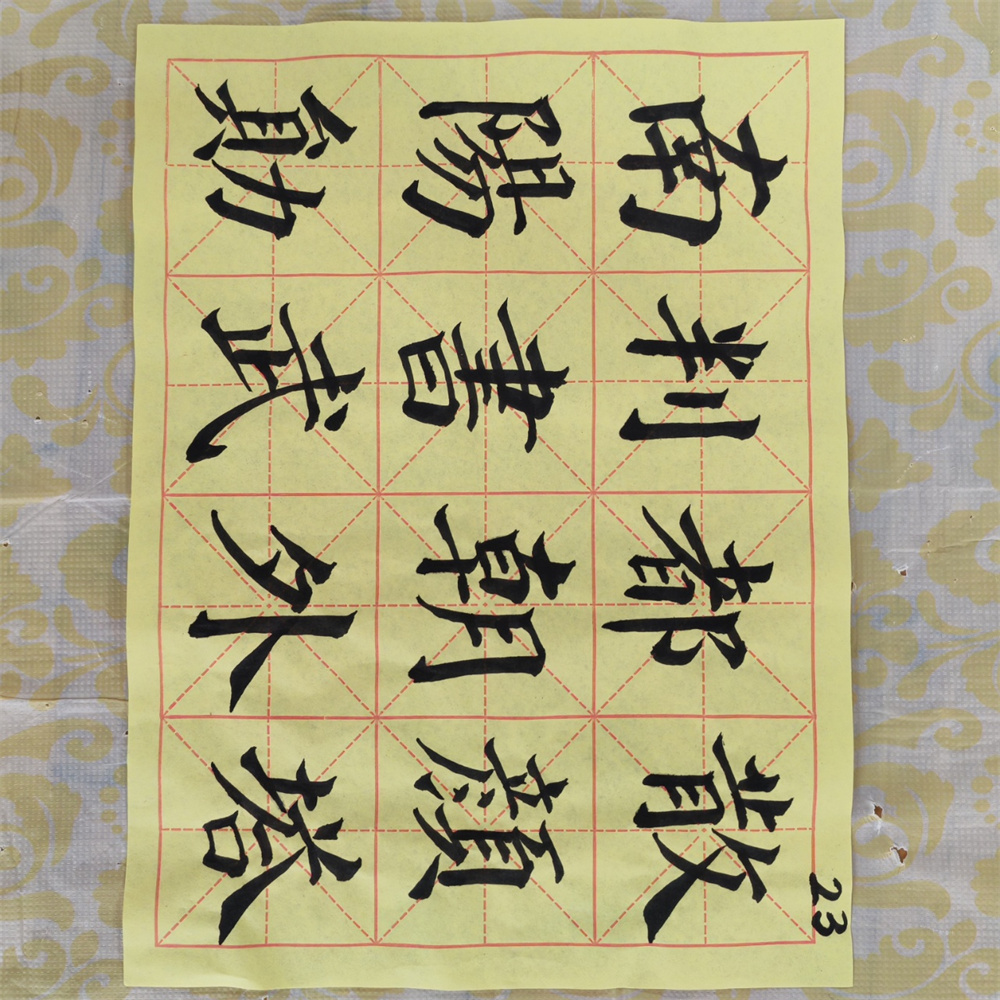 23
南陽勛
判書武
都朝外
散顏塔